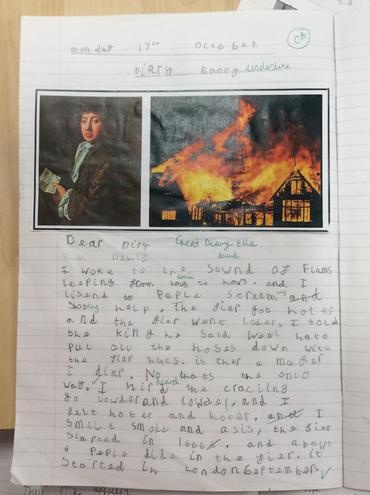 monday 17th october
OA
Diary Enery Underline
Dear Diry Great Diary Ella
sound
I woke to the Sownd of Flams
leeping from hows to hows. and I
lisend to Peple screem ing and
Shoting help. the fier got hot er
and the fier went lader. I told
the king he said weel hato
pull all the hoses down with
the fier hucs. is ther a mater
I diar. No thats the only
way. I hird heard the craciling
go lowder and lowder, and I
felt hot er and hoter. and I
smelt smoke and asis, the fier
started in 1666. and abowt
6 Peple dide in the fier. it
started in London September.